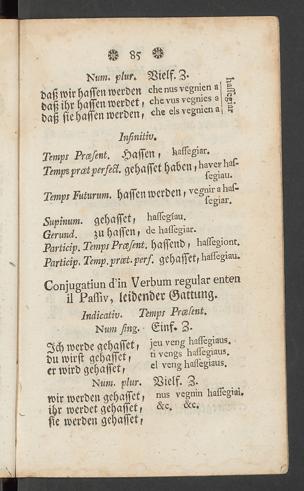 ❉ 85 ❉
Num. plur. Vielf. Z.
daß wir hassen werden che nus vegnien a
daß ihr hassen werdet, che vus vegnies a
daß sie hassen werden, che els vegnien a
hassegiar
Infinitiv.
Temps Præsent. Hassen, hassegiar.
Temps præt perfect. gehasset haben, haver has-
segiau.
Temps Futurum. hassen werden, vegnir a has-
segiar.
Supinum. gehasset, hassegiau.
Gerund. zu hassen, de hassegiar.
Particip. Temps Præsent. hassend, hassegiont.
Particip. Temp. præt. perf. gehasset, hassegiau.
Conjugatiun d'in Verbum regular enten
il Passiv, leidender Gattung.
Indicativ. Temps Præsent.
Num sing. Einf. Z.
Ich werde gehasset, jeu veng hassegiaus.
du wirst gehasset, ti vengs hassegiaus.
er wird gehasset, el veng hassegiaus.
Num. plur. Vielf. Z.
wir werden gehasset, nus vegnin hassegiai.
ihr werdet gehasset, &c. &c.
sie werden gehasset,